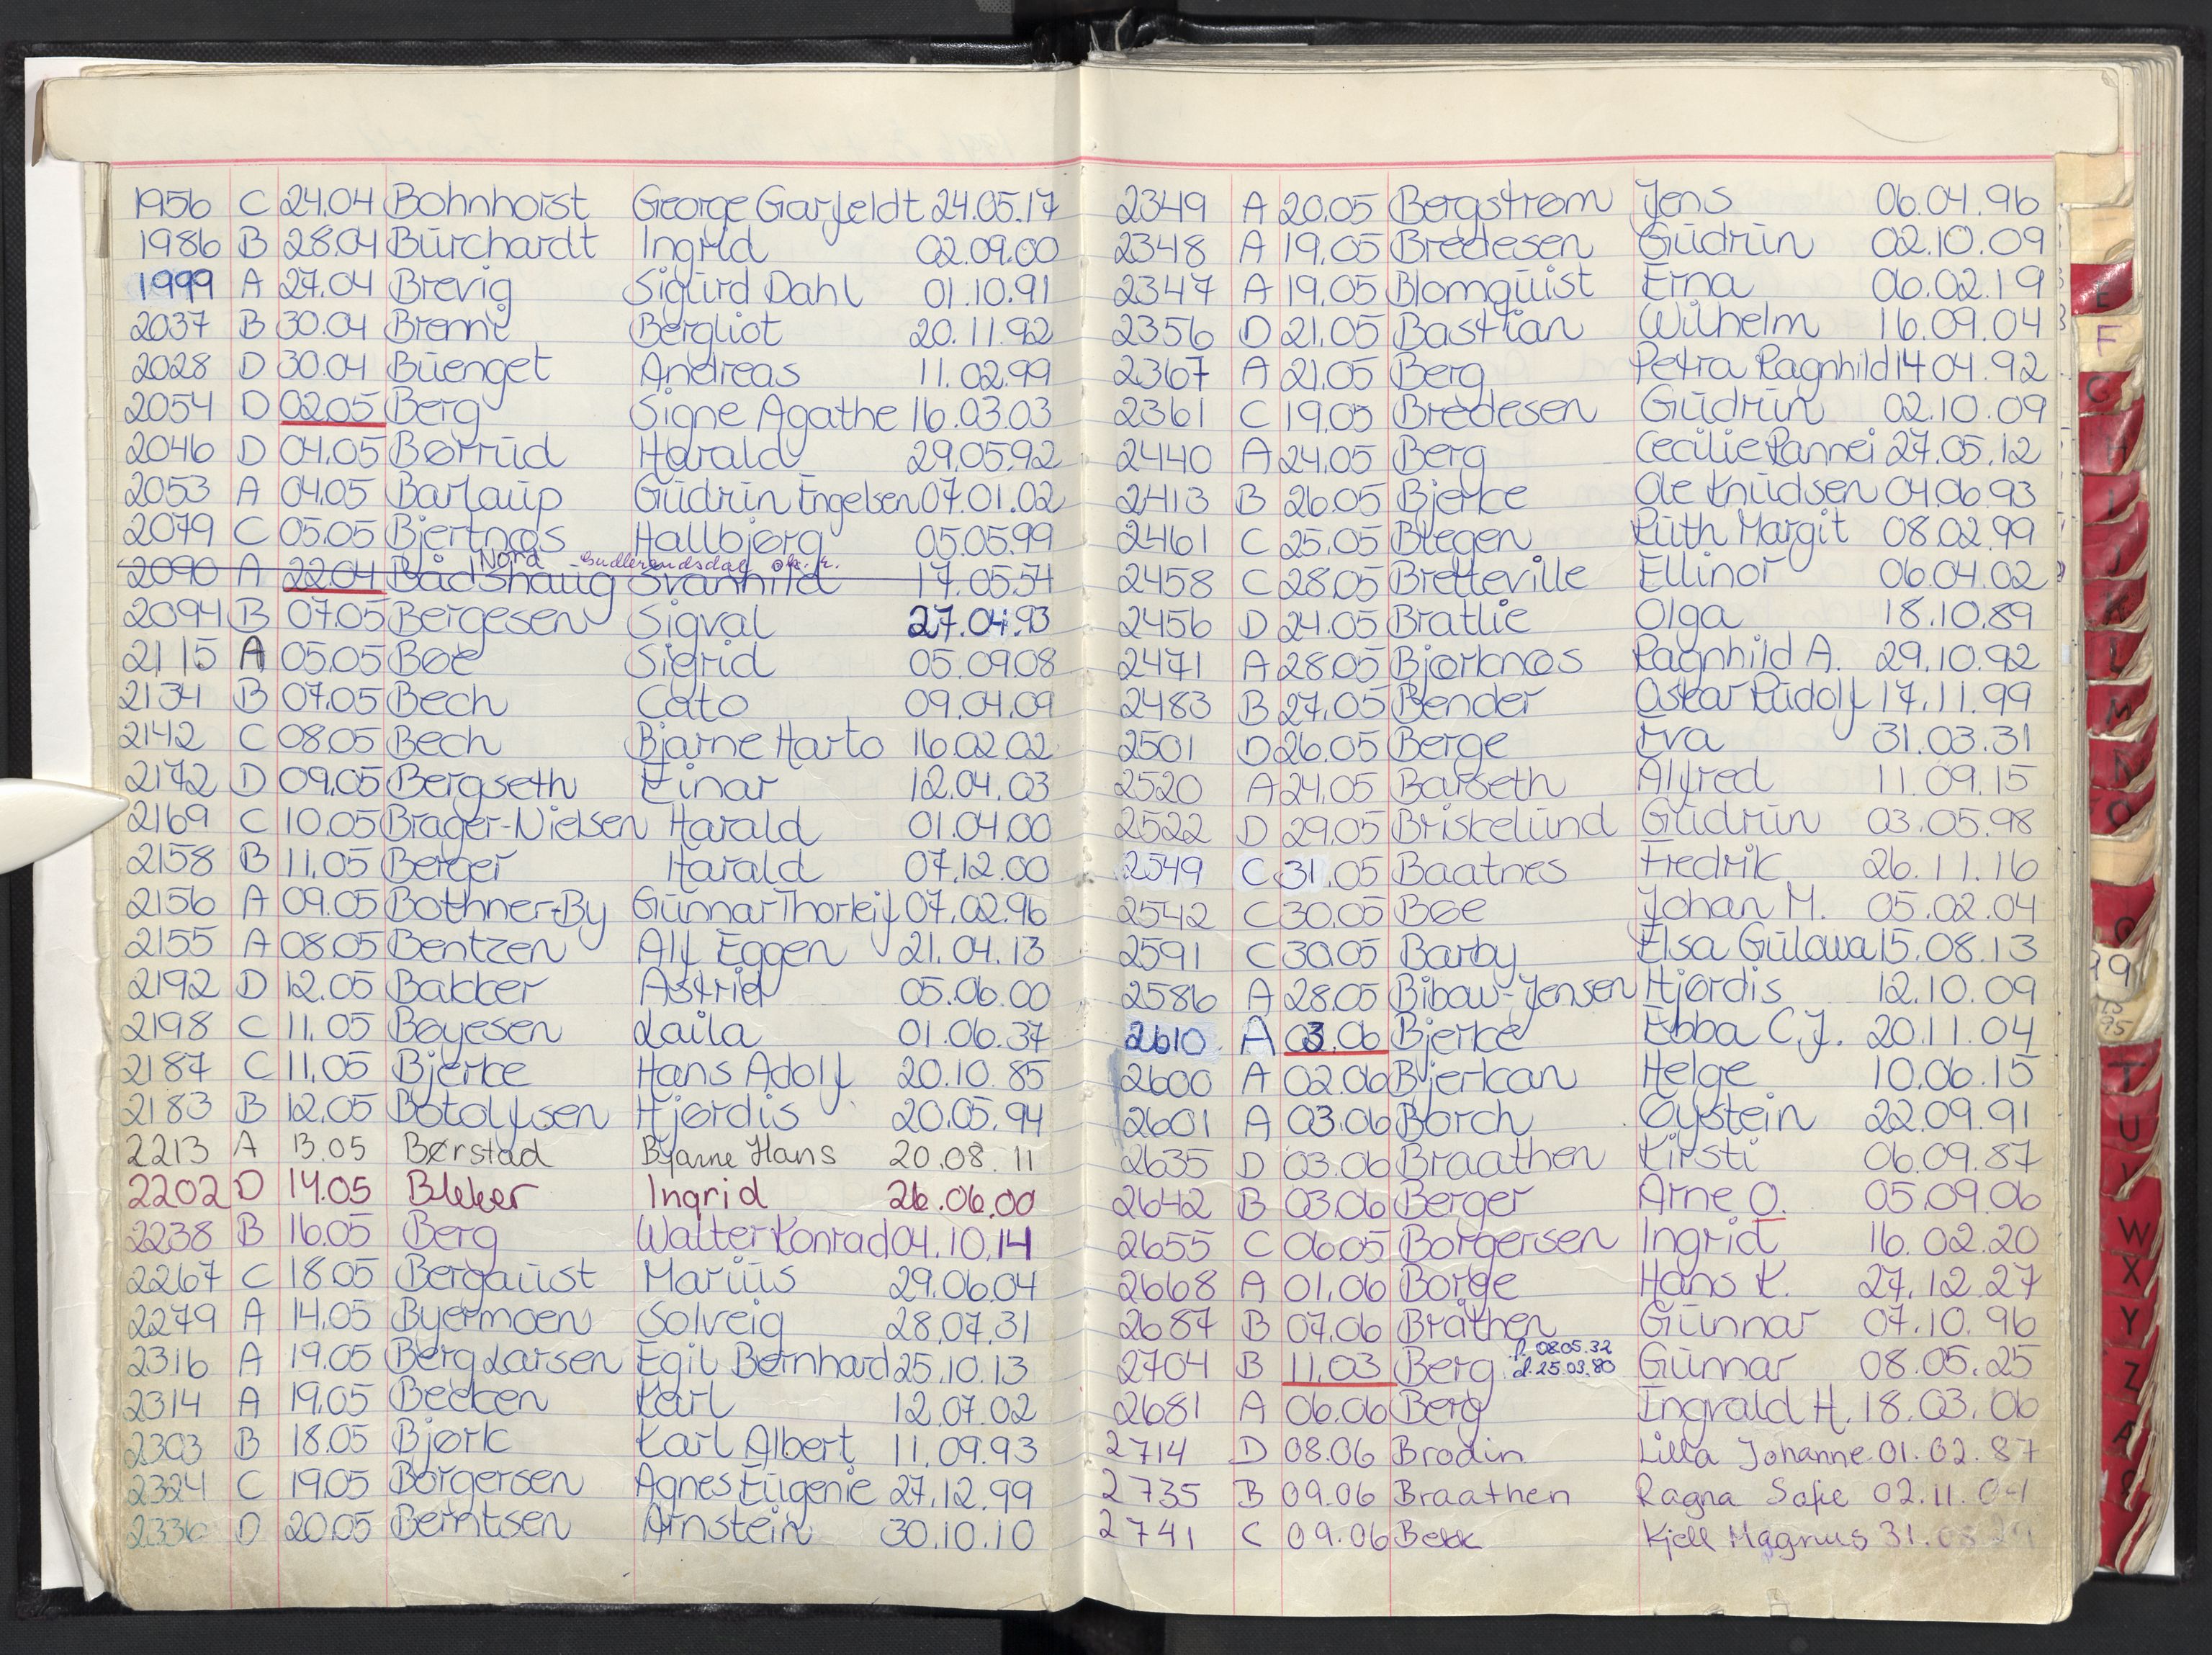 1956 C 24.04 Bohnhorst George Garfeldt 24.05.17
1986 B 28.04 Burchardt Ingrid 02.09.00
1999 A 27.04 Brevig Sigurd Dahl 01.10.91
2037 B 30.04 Brenni Bergliot 20.11.92
2028 D 30.04 Buenget Andreas 11.02.99
2054 D 02.05 Berg Signe Agathe 16.03.03
2046 D 04.05 Børrud Harald 29.05.92
2053 A 04.05 Barlaup Gudrun Engelsen 07.01.02
2079 C 05.05 Bjertnæs Hallbjørg 05.05.99
Nord
2090 A 22.04 Bådshaug Svanhild 17.05.54
2094 B 07.05 Bergesen Sigval 27.04.93
2115 A 05.05 Bøe Sigrid 05.09.08
2134 B 07.05 Bech Cato 09.04.09
2142 C 08.05 Bech Bjarne Harto 16.02.02
2172 D 09.05 Bergseth Einar 12.04.03
2169 C 10.05 Brager-Nielsen Harald 01.04.00
2158 B 11.05 Berger Harald 07.12.00
2156 A 09.05 Bothner-By Gunnar Thorleif 07.02.96
2155 A 08.05 Bentzen Alf Eggen 21.04.13
2192 D 12.05 Bakker Astrid 05.06.00
2198 C 11.05 Bøyesen Laila 01.06.37
2187 C 11.05 Bjerke Hans Adolf 20.10.85
2183 B 12.05 Botolfsen Hjørdis 20.05.94
2213 A 13.05 Børstad Bjarne Hans 20.08.11
2202 D 14.05 Bekker Ingrid 26.06.00
2238 B 16.05 Berg Walter Konrad 04.10.14
2267 C 18.05 Bergquist Marius 29.06.04
2279 A 14.05 Byermoen Solveig 28.07.31
2316 A 19.05 Berg Larsen Egil Bernhard 25.10.13
2314 A 19.05 Becken Karl 12.07.02
2303 B 18.05 Bjørk Karl Albert 11.09.93
2324 C 19.05 Borgersen Agnes Eugenie 27.12.99
2336 D 20.05 Berntsen Arnstein 30.10.10
2349 A 20.05 Bergstrøm Jens 06.04.96
2348 A 19.05 Bredesen Gudrun 02.10.09
2347 A 19.05 Blomquist Erna 06.02.19
2356 D 21.05 Bastian Wilhelm 16.09.04
2367 A 21.05 Berg Petra Ragnhild 14 04.92
2361 C 19.05 Bredesen Gudrun 02.10.09
2440 A 24.05 Berg Cecilie Rannei 27.05.12
2413 B 26.05 Bjerke Ole Knudsen 04.06.93
2461 C 25.05 Blegen Ruth Margit 08.02.99
2458 C 28.05 Bretteville Ellinor 06.04.02
2456 D 24.05 Bratlie Olga 18.10.89
2471 A 28.05 Bjørknes Ragnhild A. 29.10.92
2483 B 27.05 Bender Oskar Rudolf 17.11.99
2501 D 26.05 Berge Eva 31.03.31
2520 A 24.05 Barseth Alfred 11.09.15
2522 D 29.05 Briskelund Gudrun 03.05.98
2549 C 31.05 Baatnes Fredrik 26.11.16
2542 C 30.05 Bøe Johan M. 05.02.04
2591 C 30.05 Barby Elsa 15.08.13
2586 A 28.05 Bibow-Jensen Hjørdis 12.10.09
2610 A 03.06 Bjerke Ebba C.J. 20.11.04
2600 A 02.06 Bjerkan Helge 10.06.15
2601 A 03.06 Borch Øystein 22.09.91
2635 D 03.06 Braathen Kirsti 06.09.87
2642 B 03.06 Berger Arne O. 05.09.06
2655 C 06.05 Borgersen Ingrid 16.02.20
2668 A 01.06 Borge Hans K. 27.12.27
2687 B 07.06 Bråthen Gunnar 07.10.96
f. 08.05.32
2704 B 11.03 Berg d. 25.03.80 Gunnar 08.05.25
2681 A 06.06 Berg Ingvald H. 18.03.06
2714 D 08.06 Brodin Lilla Johanne 01.02.87
2735 B 09.06 Braathen Ragna Sofie 02.11.04
2741 C 09.06 Bekk Kjell Magnus 31.
E
F
G
H
I
J
K
L
M
N
O
T
U
V
W
X
Y
Z